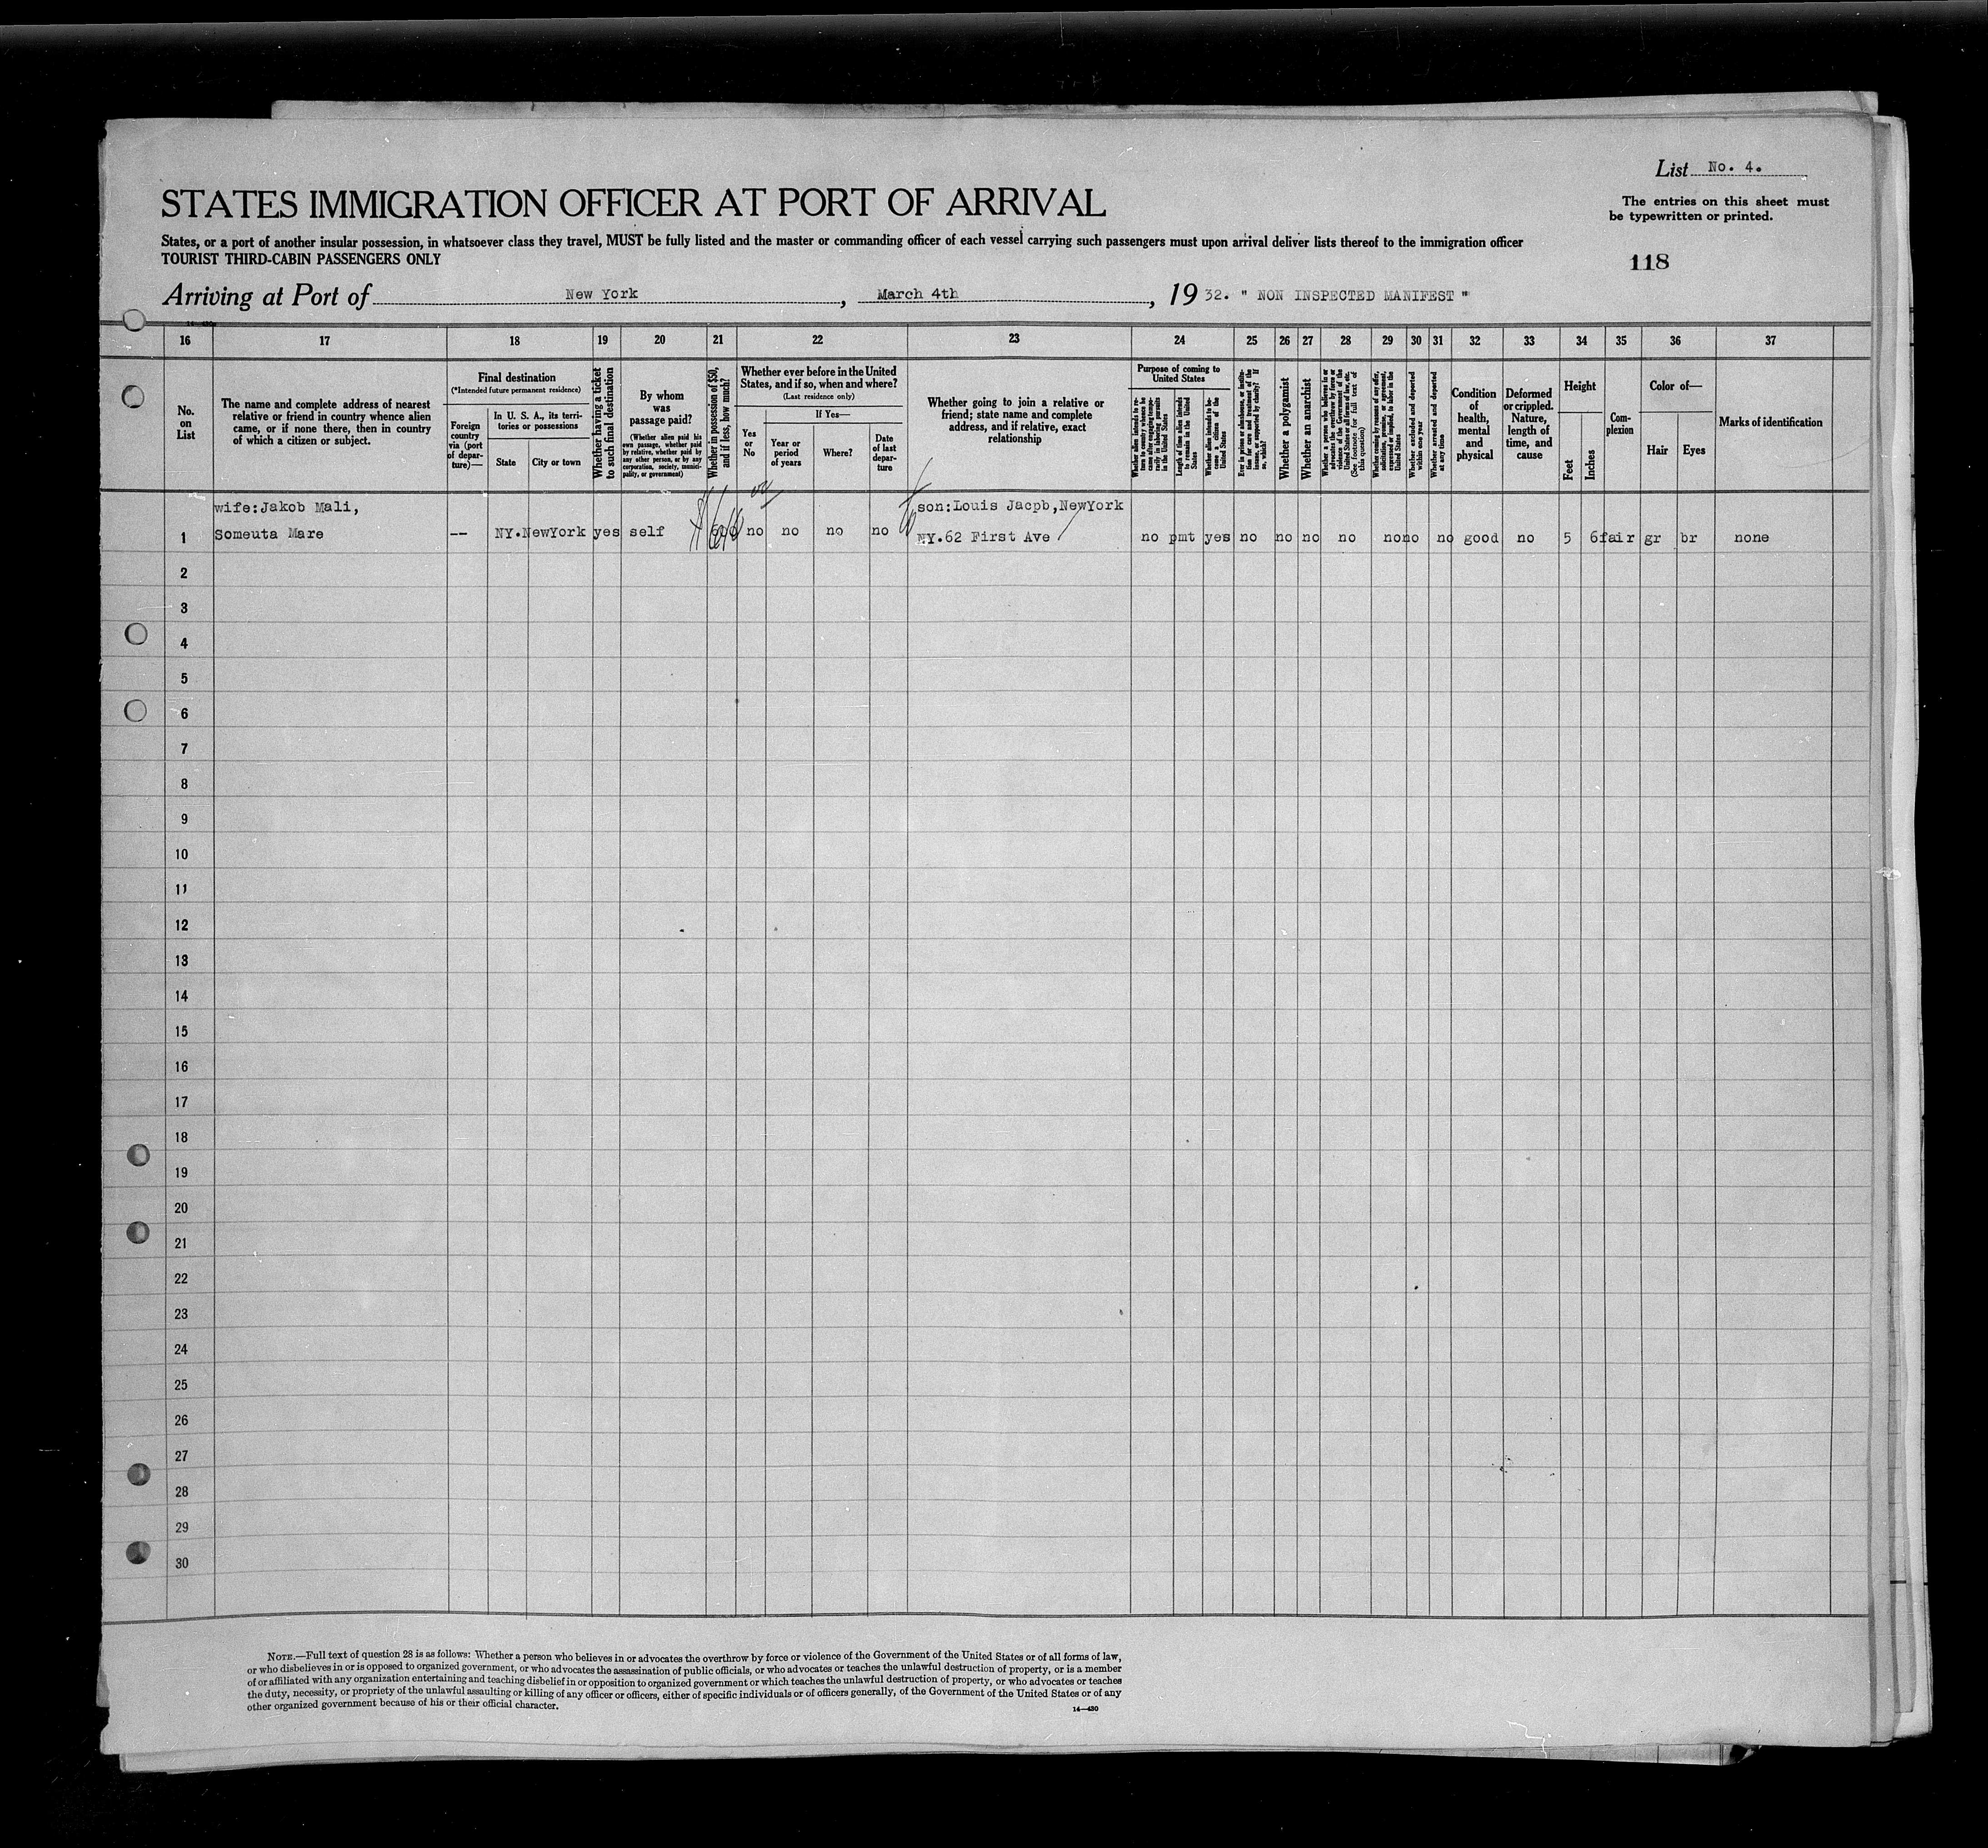 List No. 4.
STATES IMMIGRATION OFFICER AT PORT OF ARRIVAL
The entries on this sheet must
be typewritten or printed.
States, or a port of another insular possession, in whatsoever class they travel, MUST be fully listed and the master or commanding officer of each vessel carrying such passengers must upon arrival deliver lists thereof to the immigration officer
TOURIST THIRD-CABIN PASSENGERS ONLY
118
Arriving at Port of New York, March 4th, 19 32. " NON INSPECTED MANIFEST "
16 17 18 19 20 21 22 23 24 25 26 27 28 29 30 31 32 33 34 35 36 37
No.
on
List
The name and complete address of nearest
relative or friend in country whence alien
came, or if none there, then in country
of which a citizen or subject.
Final destination
(*Intended future permanent residence)
Foreign
country
via (port
of depar-
ture)—
In U. S. A., its terri-
tories or possessions
State
City or town
Whether having a ticket
to such final destination
By whom
was
passage paid?
(Whether alien paid his
own passage, whether paid
by relative, whether paid by
any other person, or by any
corporation, society, munici-
pality, or government)
Whether in possession of $50,
and if less, how much?
Whether ever before in the United
States, and if so, when and where?
(Last residence only)
Yes
or
No
If Yes—
Year or
period
of years
Where?
Date
of last
depar-
ture
Whether going to join a relative or
friend; state name and complete
address, and if relative, exact
relationship
Purpose of coming to
United States
Whether alien intends to re-
turn to country whence he
came after engaging tempo-
rarily in laboring pursuits
in the United States
Length of time alien intends
to remain in the United
States
Whether alien intends to be-
come a citizen of the
United States
Ever in prison or almshouse, or institu-
tion for care and treatment of the
insane, or supported by charity? If
so, which?
Whether a polygamist
Whether an anarchist
Whether a person who believes in or
advocates the overthrow by force or
violence of the Government of the
United States or all forms of law, etc.
(See footnote for full text of
this question)
Whether coming by reason of any offer,
solicitation, promise, or agreement,
expressed or implied, to labor in the
United States
Whether excluded and deported
within one year
Whether arrested and deported
at any time
Condition
of
health,
mental
and
physical
Deformed
or crippled.
Nature,
length of
time, and
cause
Height
Feet
Inches
Com-
plexion
Color of—
Hair
Eyes
Marks of identification
wife:Jakob Mali,
son:Louis Jacpb,NewYork
1 Someuta Mare -- NY. NewYork yes self no no no no NY.62 First Ave no pmt yes no no no no no no no good no 5 6 fair gr br none
2
3
4
5
6
7
8
9
10
11
12
13
14
15
16
17
18
19
20
21
22
23
24
25
26
27
28
29
30
NOTE.—Full text of question 28 is as follows: Whether a person who believes in or advocates the overthrow by force or violence of the Government of the United States or of all forms of law,
or who disbelieves in or is opposed to organized government, or who advocates the assassination of public officials, or who advocates or teaches the unlawful destruction of property, or is a member
of or affiliated with any organization entertaining and teaching disbelief in or opposition to organized government or which teaches the unlawful destruction of property, or who advocates or teaches
the duty, necessity, or propriety of the unlawful assaulting or killing of any officer or officers, either of specific individuals or of officers generally, of the Government of the United States or of any
other organized government because of his or their official character.
14—430